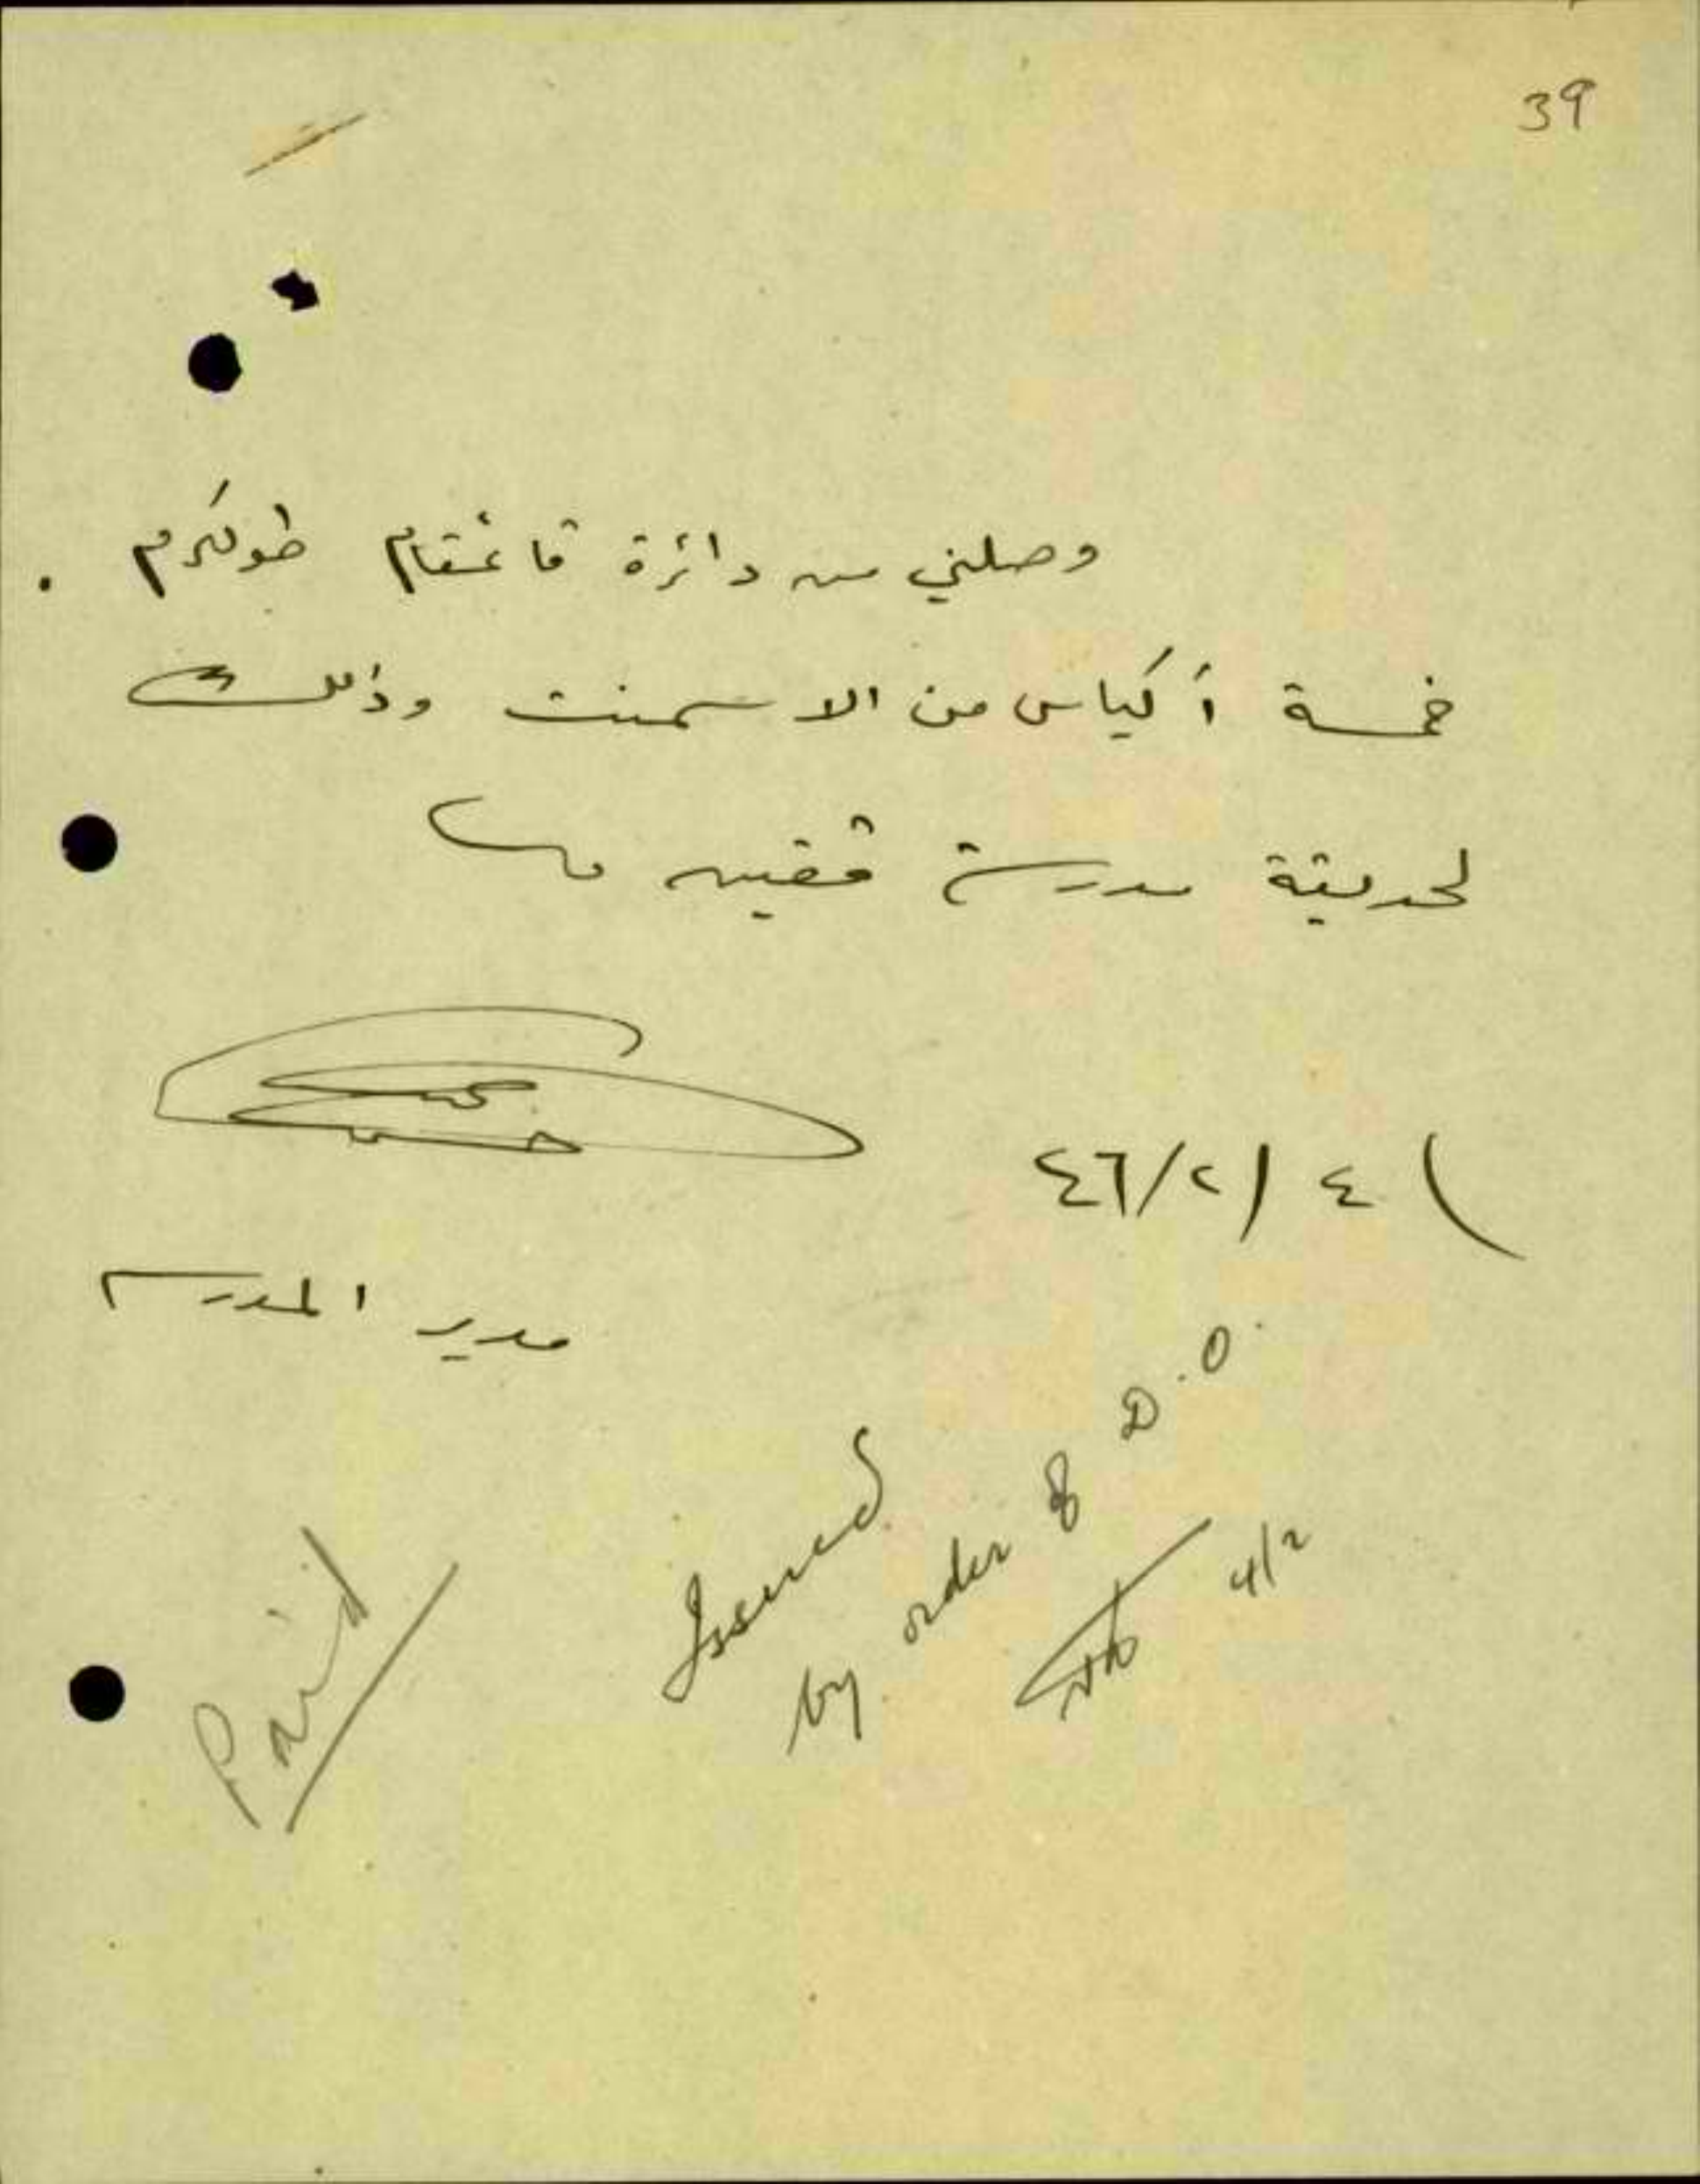 39
وصلني من دائرة قائمقام طولكرم .
خمسة أكياس من الاسمنت وذلك
لحديقة مدرسة قفين
٤٦/٢/٤
مدير المدرسة
Issued
by order of D.O.
4/2
Paid